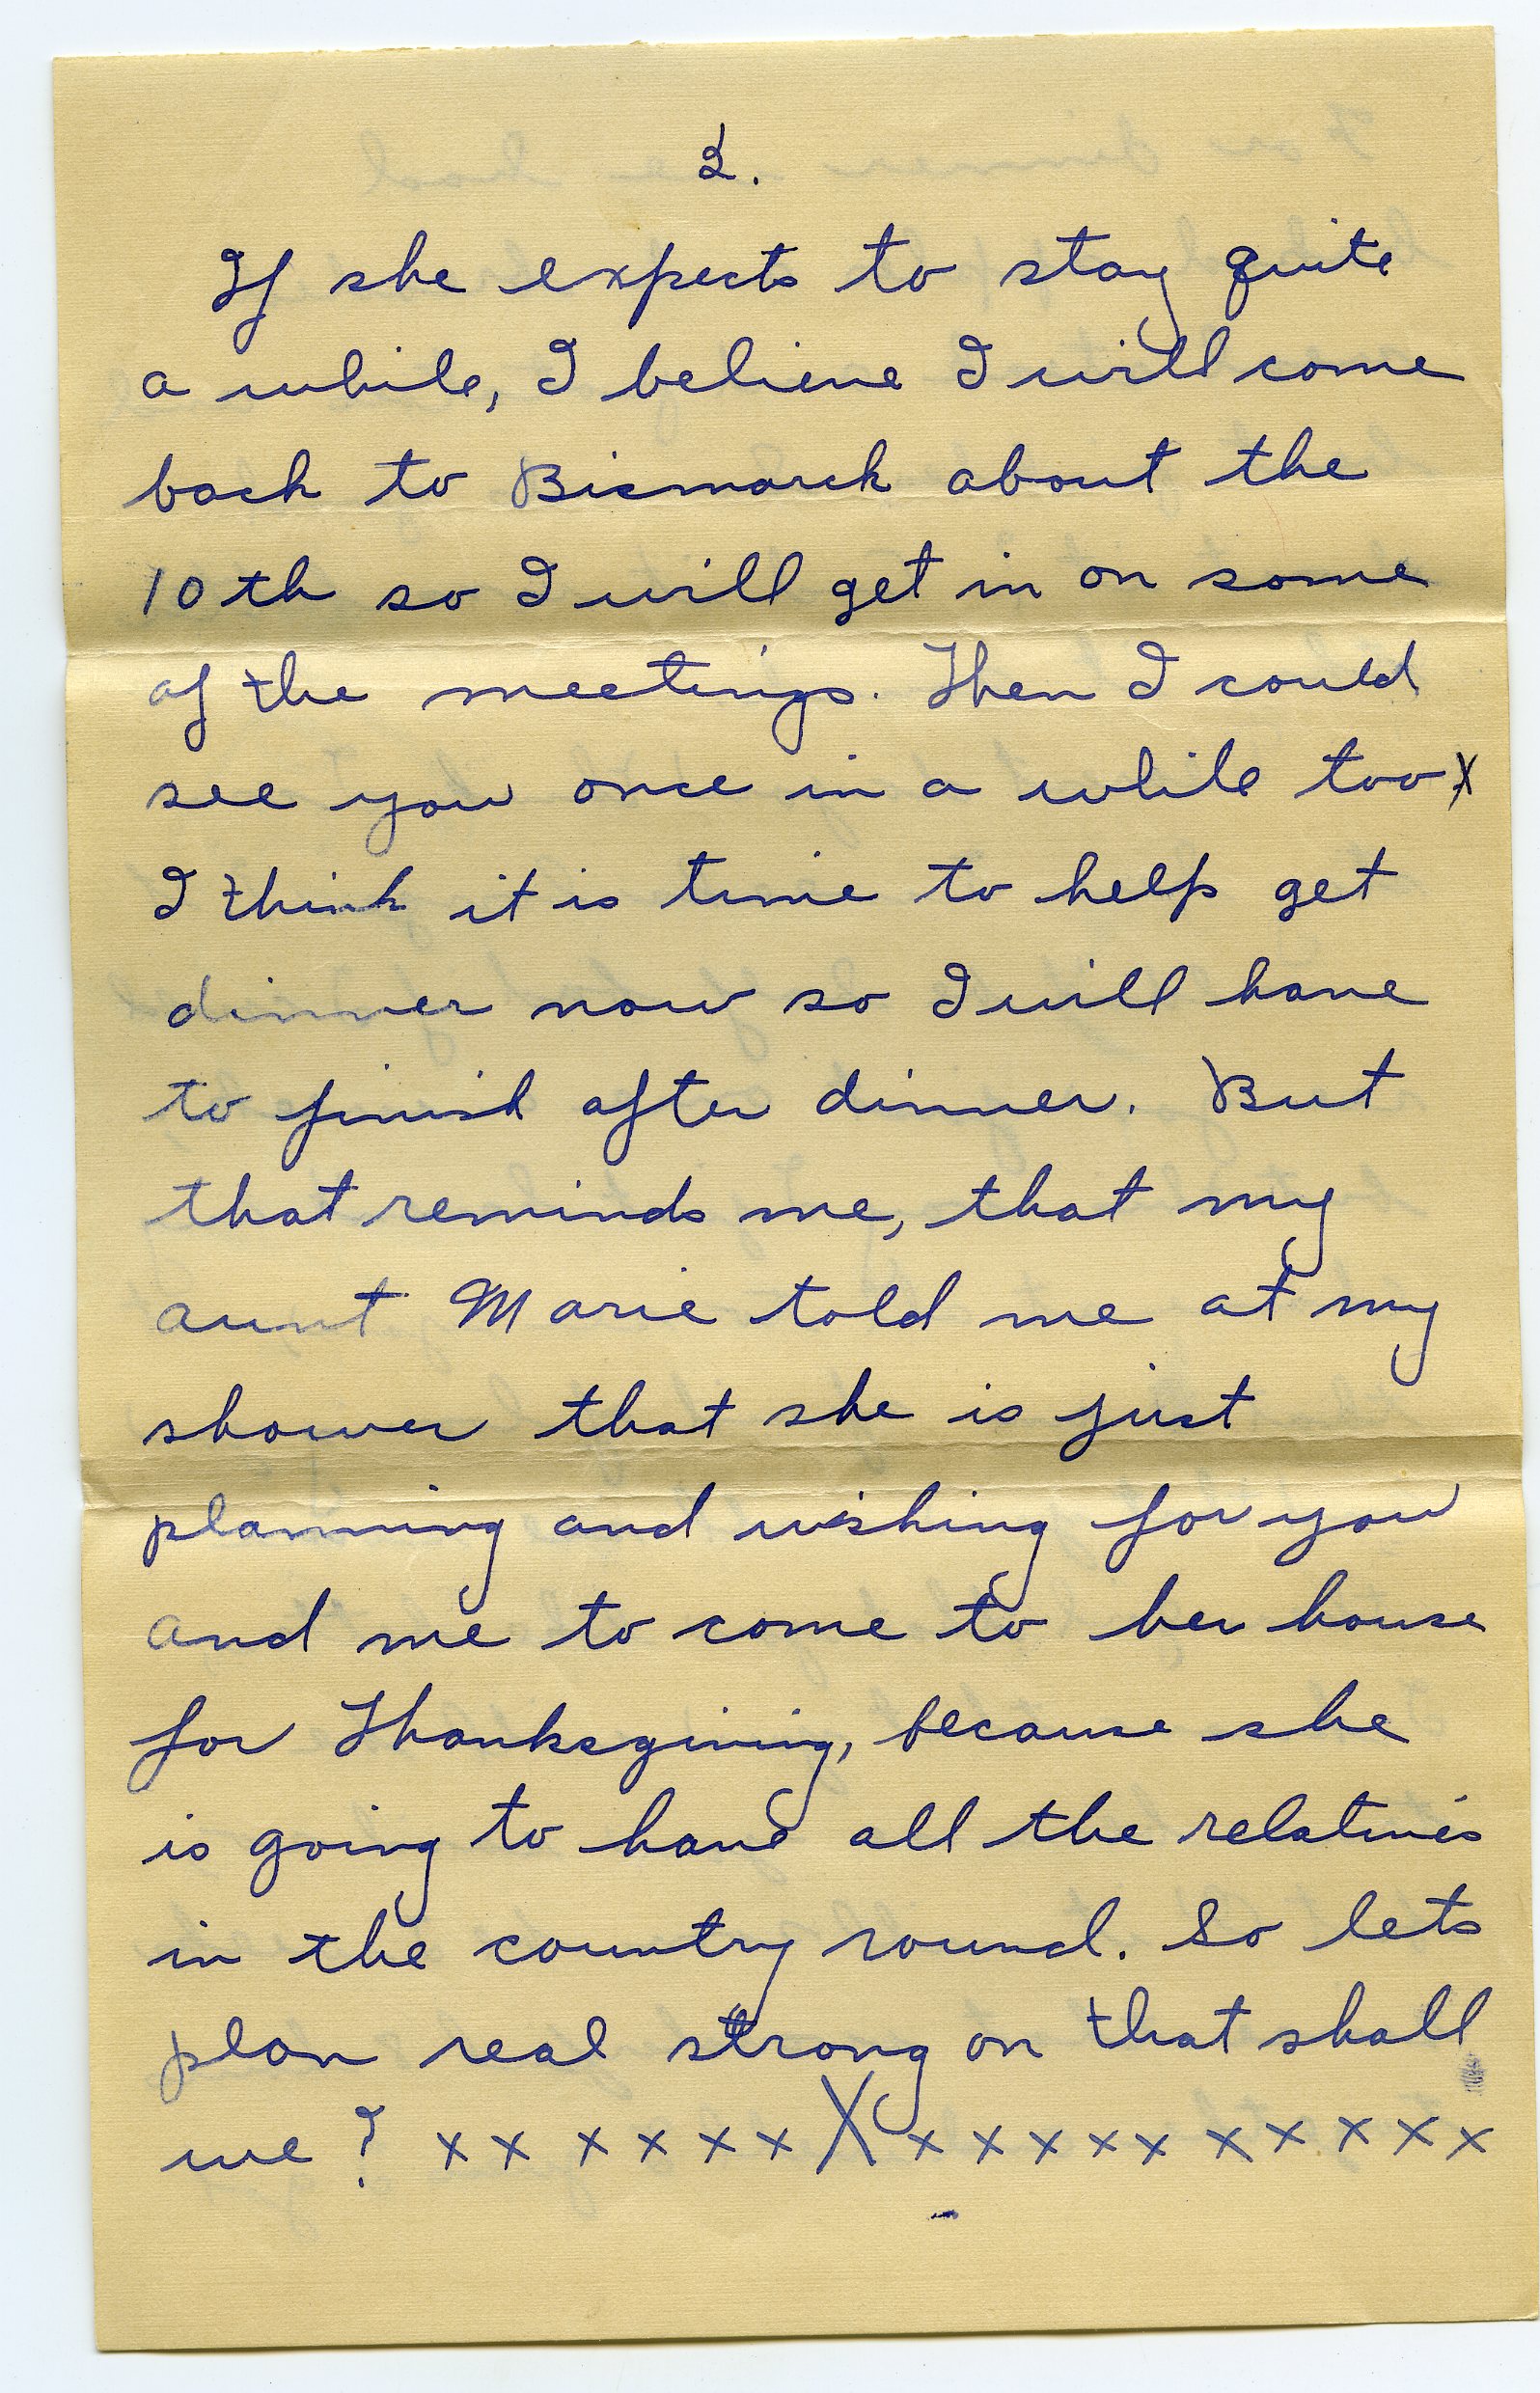 3.
If she expects to stay quite
a while, I believe I will come
back to Bismarck about the
10th so I will get in on some
of the meetings. Then I could
see you once in a while too X
I think it is time to help get
dinner now so I will have
to finish after dinner. But
that reminds me, that my
aunt Marie told me at my
shower that she is just
planning and wishing for you
and me to come to her house
for Thanksgiving, because she
is going to have all the relatives
in the country round. So lets
plan real strong on that shall
we? x x x x x x X x x x x x x x x x x